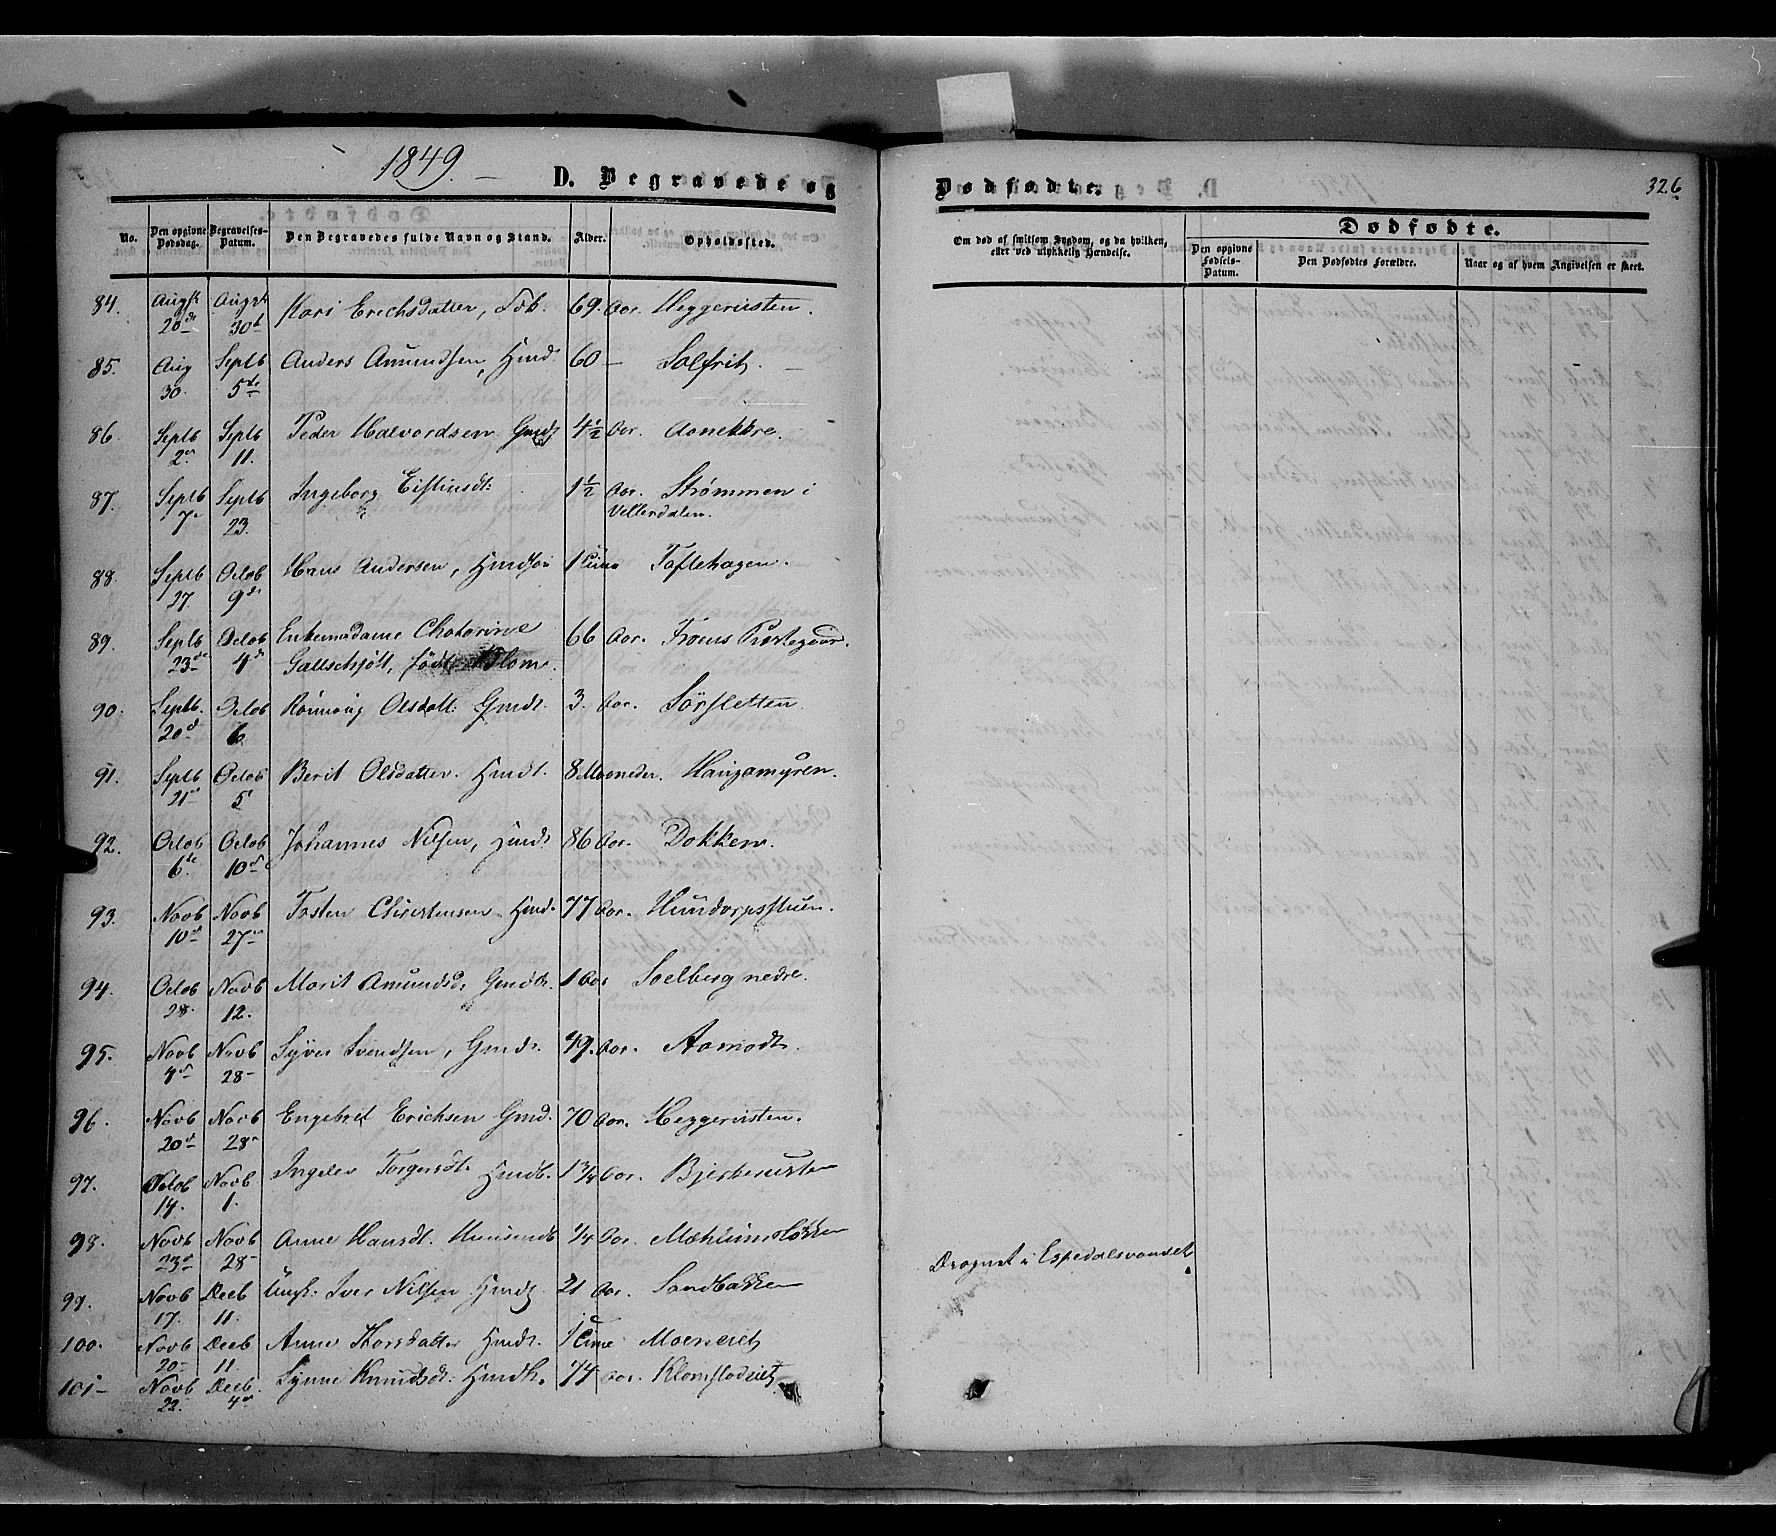 1849.
D. Begravede og
Dødfødte.
326
No.
Den opgivne Dødsdag.
Begravelses-Datum.
Den Begravedes fulde Navn og Stand.
Alder.
Opholdssted.
Om død af smitsom Sygdom, og da hvilken, eller ved ulykkelig Hændelse.
Dødfødte.
Den opgivne Fødsels-Datum.
Den Dødfødtes Forældre.
Naar og af hvem Angivelsen er skeet.
84. Augst Augst Kari Erichsdatter, 69. Aar. Heggerusten.
20de 30t
85. Aug Septb Anders Amundsen, Hmd. 60 — Solfrit. —
30. 5te
86. Septb Septb Peder Halvordsen Gmds 4½ Aar. Aanekkre.
2n 11.
87. Septb Septb Ingeborg Eistinsdt: 1½ Aar. Strømmen i
7n 23. Vellerdalen.
88. Septb Octob Hans Andersen, Hmdsøn 1 Time Toftehagen.
27. 9de
89. Septb Octob Enkemadame Chatarine 66 Aar. Froens Præstegaar.
23de 4d Gottschjött, født Blom.
90. Septb. Octob Rönnoug Olsdatt: Gmdt. 3. Aar. Sörfletten.
20d 6.
91. Septb Octob Berit Olsdatter. Hmdt. 8 Maaneder. Haugamyren.
21n 5
92. Octob Octob Johannes Nilsen, Hmds 86 Aar. Dokken.
6te 10d
93. Novb Novb Tosten Christensen Hmd. 77 Aar. Hundorpstuen.
10d 27n
94. Octob Novb Marit Amundsd. Gmdt. 1 Aar Solberg nedre.
28. 12.
95. Novb Novb Syver Svendsen, Gmd. 49. Aar. Aamodt.
4d 28–
96. Novb Novb Engebret Erichsen Gmd. 70 Aar. Heggerusten.
20d 28n
97. Octob Novb Ingelev Torgersdt. Hmdb. 1¾ Aar. Bjerkerusten
14. 1.
98. Novb Novb Anne Hansdt. ¼ Aar. Mæhlumsløkken
23d 28–
99. Novb Decb Ungk: Iver Nilsen Hmds. 21 Aar. Sandbakken Drognet i Espedalsvandet
17. 11.
100. Novb Decb Anne Thorsdatter Hmdt. 1 Time Moeneiet
20– 11.
101– Novb Decb. Synne Knudsdt. Hmdk. 74 Aar. Klomstadeiet
22. 4n